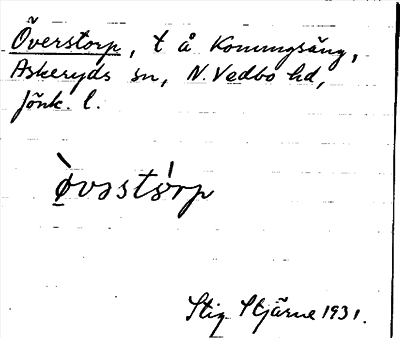 Överstorp, t å Konungsäng,
Askeryds sn, N. Vedbo hd,
Jönk. l.
ø̀vəstórp
Stig Stjärne 1931.